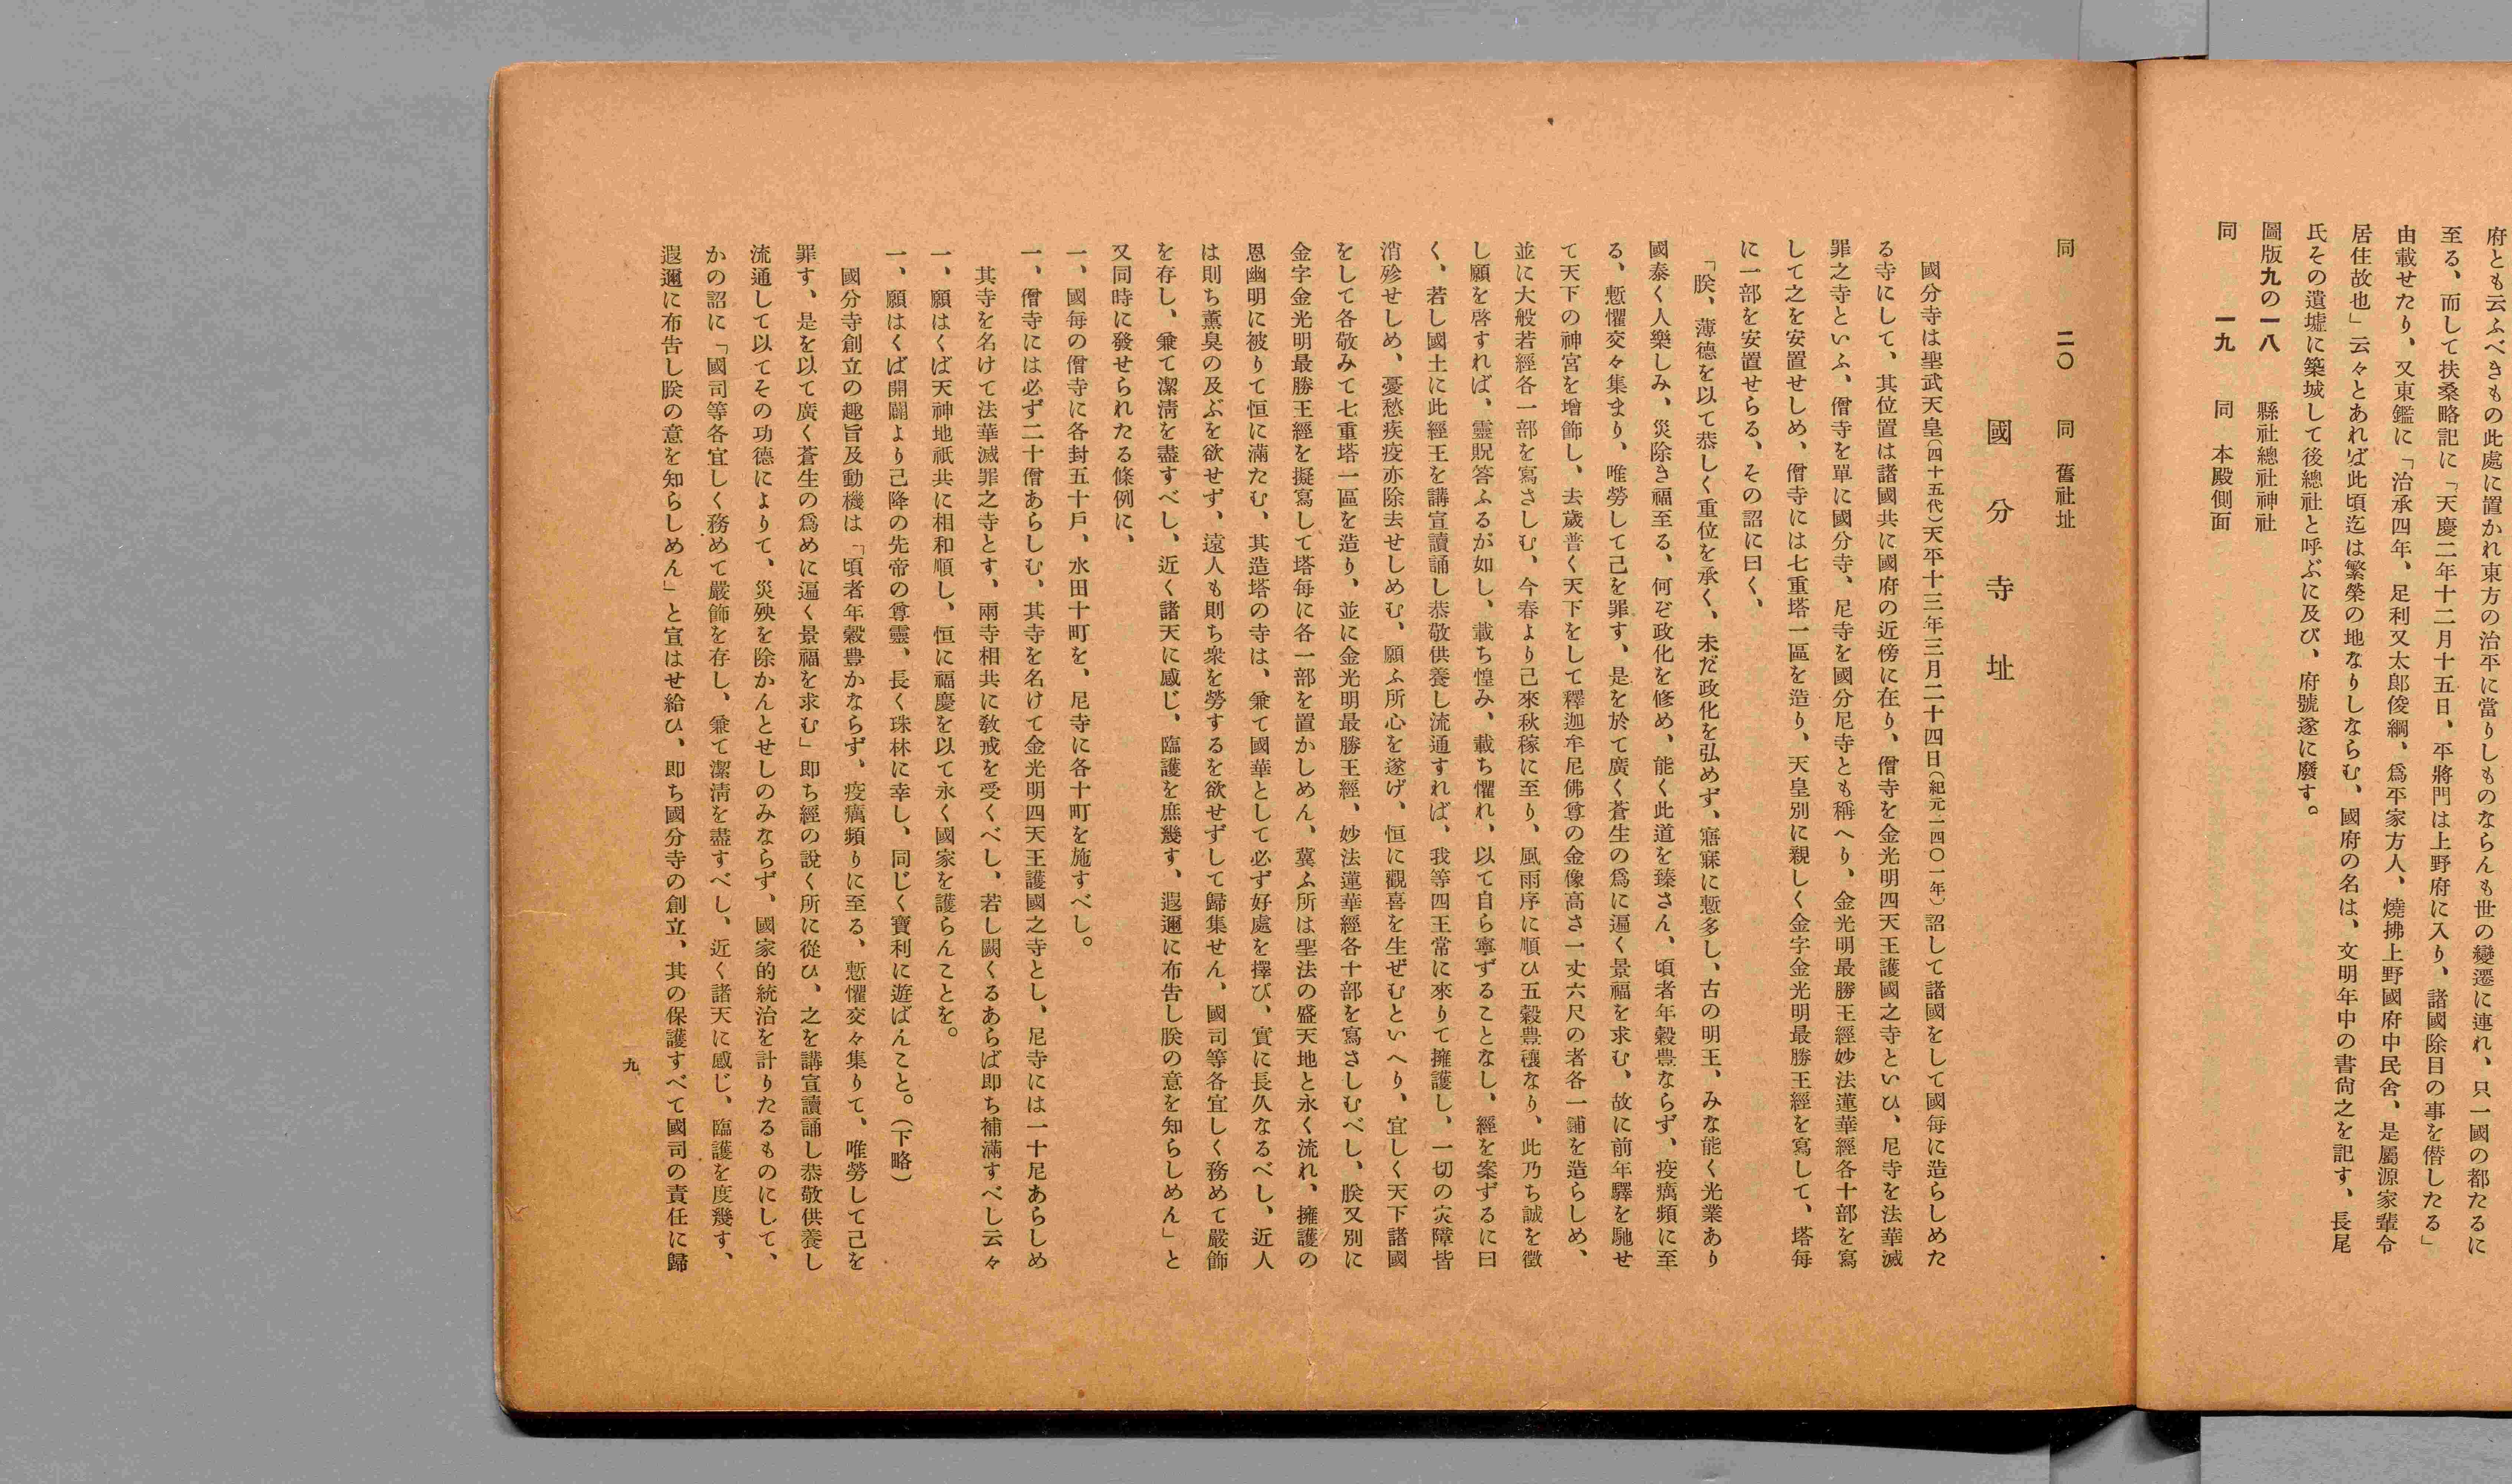 府とも云ふべきもの此處に置かれ東方の治平に當りしものならんも世の變遷に連れ、只一國の都たるに
至る、而して扶桑略記に「天慶二年十二月十五日、平將門は上野府に入り、諸國除目の事を僭したる」
由載せたり、又東鑑に「治承四年、足利又太郎俊綱、爲平家方人、燒拂上野國府中民舍、是屬源家輩令
居住故也」云々とあれば此頃迄は繁榮の地なりしならむ、國府の名は、文明年中の書尙之を記す、長尾
氏その遺墟に築城して後總社と呼ぶに及び、府號遂に廢す。
圖版九の一八　縣社總社神社
同　一九　同　本殿側面
同　二〇　同　舊社址
國分寺址
國分寺は聖武天皇(四十五代)天平十三年三月二十四日(紀元一四〇一年)詔して諸國をして國毎に造らしめた
る寺にして、其位置は諸國共に國府の近傍に在り、僧寺を金光明四天王護國之寺といひ、尼寺を法華滅
罪之寺といふ、僧寺を單に國分寺、尼寺を國分尼寺とも稱へり、金光明最勝王經妙法蓮華經各十部を寫
して之を安置せしめ、僧寺には七重塔一區を造り、天皇別に親しく金字金光明最勝王經を寫して、塔毎
に一部を安置せらる、その詔に曰く、
「朕、薄德を以て恭しく重位を承く、未だ政化を弘めず、寤寐に慙多し、古の明王、みな能く光業あり
國泰く人樂しみ、災除き福至る、何ぞ政化を修め、能く此道を臻さん、頃者年穀豊ならず、疫癘頻に至
る、慙懼交々集まり、唯勞して己を罪す、是を於て廣く蒼生の爲に遍く景福を求む、故に前年驛を馳せ
て天下の神宮を增飾し、去歲普く天下をして釋迦牟尼佛尊の金像高さ一丈六尺の者各一鋪を造らしめ、
並に大般若經各一部を寫さしむ、今春より己來秋稼に至り、風雨序に順ひ五穀豊穰なり、此乃ち誠を徵
し願を啓すれば、靈貺答ふるが如し、載ち惶み、載ち懼れ、以て自ら寧ずることなし、經を案ずるに曰
く、若し國土に此經王を講宣讀誦し恭敬供養し流通すれば、我等四王常に來りて擁護し、一切の灾障皆
消殄せしめ、憂愁疾疫亦除去せしめむ、願ふ所心を遂げ、恒に觀喜を生ぜむといへり、宜しく天下諸國
をして各敬みて七重塔一區を造り、並に金光明最勝王經、妙法蓮華經各十部を寫さしむべし、朕又別に
金字金光明最勝王經を擬寫して塔毎に各一部を置かしめん、冀ふ所は聖法の盛天地と永く流れ、擁護の
恩幽明に被りて恒に滿たむ、其造塔の寺は、兼て國華として必ず好處を擇び、實に長久なるべし、近人
は則ち薫臭の及ぶを欲せず、遠人も則ち衆を勞するを欲せずして歸集せん、國司等各宜しく務めて嚴飾
を存し、兼て潔淸を盡すべし、近く諸天に感じ、臨護を庶幾す、遐邇に布告し朕の意を知らしめん」と
又同時に發せられたる條例に、
一、國毎の僧寺に各封五十戸、水田十町を、尼寺に各十町を施すべし。
一、僧寺には必ず二十僧あらしむ、其寺を名けて金光明四天王護國之寺とし、尼寺には一十尼あらしめ
其寺を名けて法華滅罪之寺とす、兩寺相共に敎戒を受くべし、若し闕くるあらば即ち補滿すべし云々
一、願はくば天神地祇共に相和順し、恒に福慶を以て永く國家を護らんことを。
一、願はくば開闢より己降の先帝の尊靈、長く珠林に幸し、同じく寶利に遊ばんこと。(下略)
國分寺創立の趣旨及動機は「頃者年穀豊かならず、疫癘頻りに至る、慙懼交々集りて、唯勞して己を
罪す、是を以て廣く蒼生の爲めに遍く景福を求む」即ち經の說く所に從ひ、之を講宣讀誦し恭敬供養し
流通して以てその功德によりて、災殃を除かんとせしのみならず、國家的統治を計りたるものにして、
かの詔に「國司等各宜しく務めて嚴飾を存し、兼て潔淸を盡すべし、近く諸天に感じ、臨護を度幾す、
遐邇に布告し朕の意を知らしめん」と宣はせ給ひ、即ち國分寺の創立、其の保護すべて國司の責任に歸
九